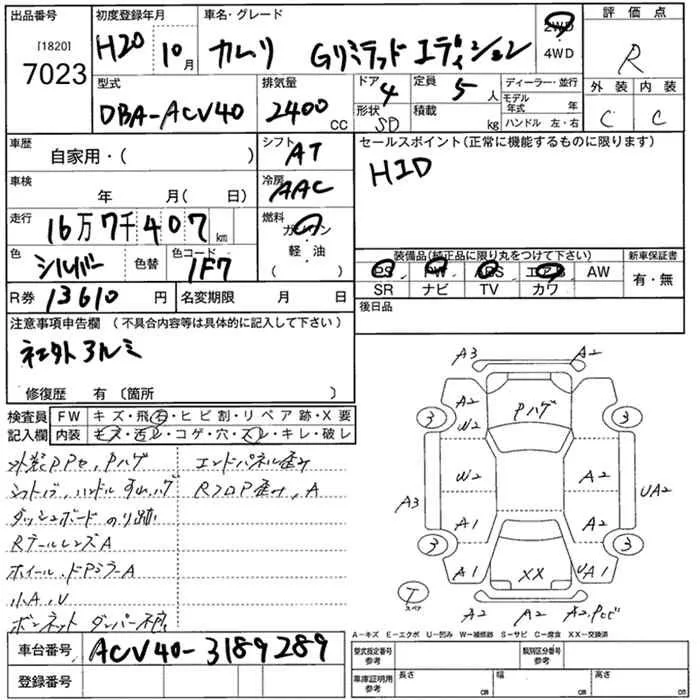 出品番号 初度登録年月 車名・グレード 2WD 評価点
[1820] 7023 H20 10月 カムリ Gリミテッド エディション 4WD R
型式 排気量 ドア 定員 ディーラー・並行 外装 内装
DBA-ACV40 2400 CC 4 5人 モデル年式 年 C C
形状 SD 積載 kg ハンドル 左・右
車歴 自家用・( ) シフト AT セールスポイント(正常に機能するものに限ります)
車検 年 月( 日) 冷房 AAC HID
走行 16万7千407 km 燃料 ガソリン
色 シルバー 色替 色コード 1F7 軽・油 ( )
装備品(純正品に限り丸をつけて下さい) 新車保証書
PS PW ABS エアB AW 有・無
SR ナビ TV カワ
R券 13610 円 名変期限 月 日 後日品
注意事項申告欄 (不具合内容等は具体的に記入して下さい)
社外アルミ
修復歴 有 (箇所 )
検査員 FW キズ・飛石・ヒビ割・リペア跡・X要
記入欄 内装 キズ・汚レ・コゲ・穴・スレ・キレ・破レ
外装PPセ, Pハゲ エンドパネル歪ミ
シフトノブ, ハンドル すれ, ハゲ RフロP歪ミ, A
ダッシュボード のり跡
RテールレンズA
ホイール, ドアミラーA
小A, U
ボンネット ダンパー不良
A3 A2
3 A2 W2 Pハゲ 3
A3 W2 A2 UA2
A1 A2
3 A1 XX UA1 3
T スペア
A2 A2 A2,Pヒビ
A-キズ E-エクボ U-凹み W-補修跡 S-サビ C-腐食 XX-交換済
車台番号 ACV40-3189289
登録番号
型式指定番号 参考 類別区分番号 参考
車庫証明用 参考 長さ cm 幅 cm 高さ cm